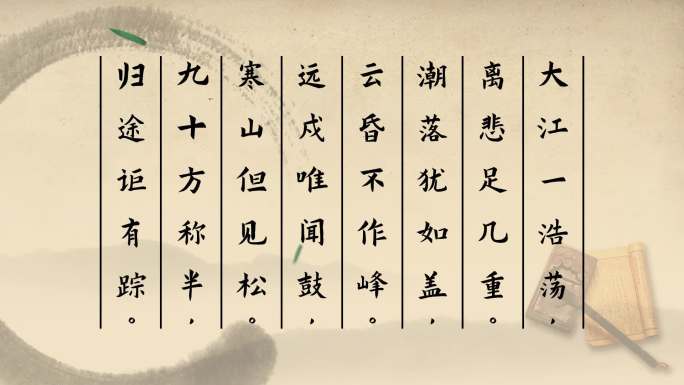 大江一浩荡，
离悲足几重。
潮落犹如盖，
云昏不作峰。
远戍唯闻鼓，
寒山但见松。
九十方称半，
归途讵有踪。